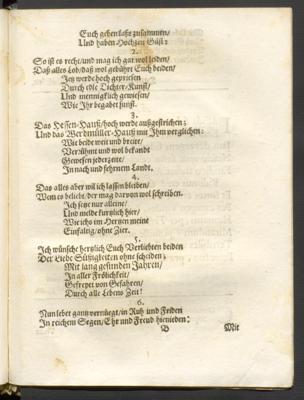 Euch geben last zusammen/
Und haben Hochzeit Gäst:
2.
So ist es recht/und mag ich gar wol leiden/
Daß alles Lob/daß wol gebührt Euch beiden/
Jetz werde hoch gepriesen
Durch edle Dichter-Kunst/
Und mennigklich gewiesen/
Wie Ihr begabet sunst.
3.
Das Hessen-Hauß/hoch werde außgestrichen;
Und das Werdmüller-Hauß mit Ihm verglichen:
Wie beide weit und breite/
Berühmt und wol bekandt
Gewesen jederzeite/
In nach und fehrnem Landt.
4.
Das alles aber wil ich lassen bleiben/
Wem es beliebt/der mag darvon wol schreiben.
Ich setze nur alleine/
Und melde kurtzlich hier/
Wie ichs im Hertzen meine
Einfaltig/ohne Zier.
5.
Ich wünsche hertzlich Euch Verliebten beiden
Der Liebe Süssigkeiten ohne scheiden;
Mit lang gesunden Jahren/
In aller Frölichkeit/
Gefreyet von Gefahren/
Durch alle Lebens Zeit!
6.
Nun lebet gantz vernügt/in Ruh und Friden
In reichem Segen/Ehr und Freud hienieden:
B Mit